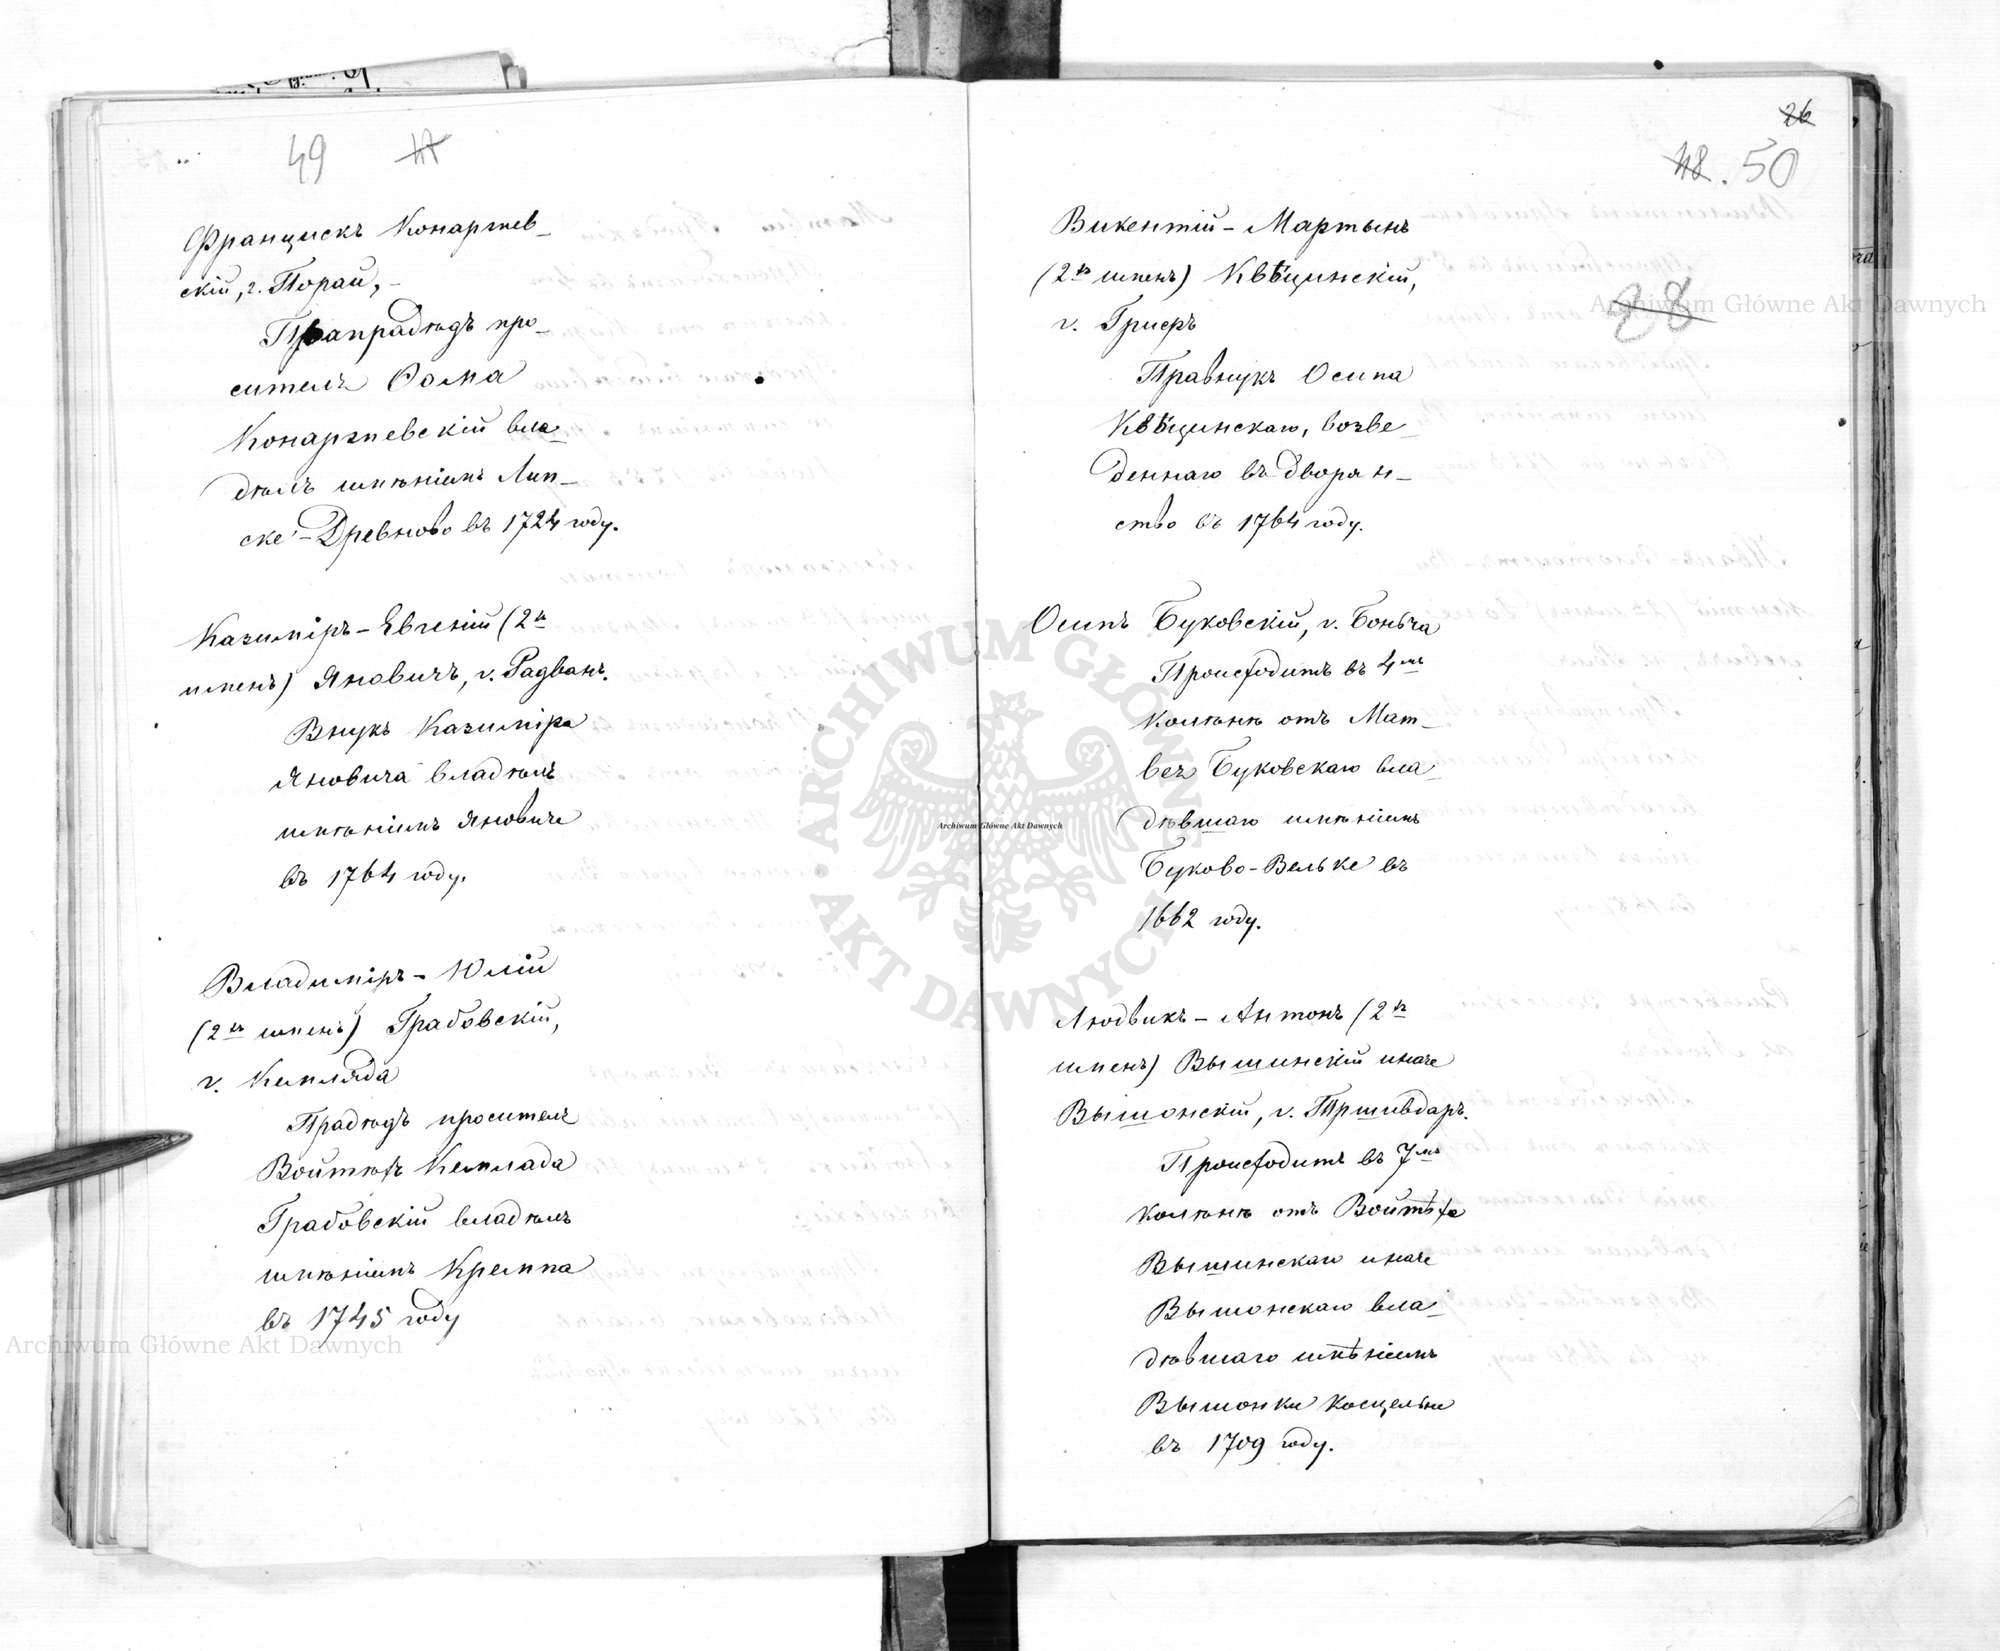 49 47
Францискъ Конаржев-
скій, г. Порай, -
Прапрадѣдъ про-
сителя Ѳома
Конаржевскій вла-
дѣлъ имѣніемъ Лип-
ске-Древново въ 1724 году.
Казиміръ-Евгеній (2хъ
именъ) Яновичъ, г. Радванъ.
Внукъ Казиміра
Яновича владѣлъ
имѣніемъ Яновиче
въ 1764 году.
Владиміръ-Юлій
(2хъ именъ) Грабовскій,
г. Кемпляда
Прадѣдъ просителя
Войтѣхъ Кемплада
Грабовскій владѣлъ
имѣніемъ Кремпа
въ 1745 году
26
48. 50
28
Викентій-Мартынъ
(2хъ именъ) Квѣцинскій,
г. Грифъ
Правнукъ Осипа
Квѣцинскаго, возве-
деннаго въ дворян-
ство въ 1764 году.
Осипъ Буковскій, г. Боньча
Происходитъ въ 4мъ
колѣнѣ отъ Мат-
вея Буковскаго вла-
дѣвшаго имѣніемъ
Буково-Вельке въ
1662 году.
Людвикъ-Антонъ (2хъ
именъ) Вышинскій иначе
Вышонскій, г. Тршивдаръ.
Происходитъ въ 7мъ
колѣнѣ отъ Войтѣха
Вышинскаго иначе
Вышонскаго вла-
дѣвшаго имѣніемъ
Вышонки Косцельне
въ 1709 году.
Archiwum Główne Akt Dawnych
Archiwum Główne Akt Dawnych
Archiwum Główne Akt Dawnych
ARCHIWUM GŁÓWNE AKT DAWNYCH